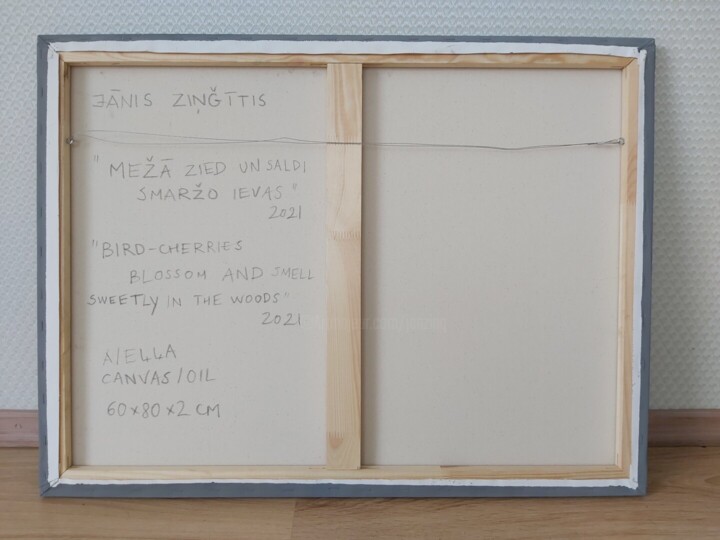 JĀNIS ZIŅĢĪTIS
"MEŽĀ ZIED UN SALDI
SMARŽO IEVAS"
2021
"BIRD-CHERRIES
BLOSSOM AND SMELL
SWEETLY IN THE WOODS"
2021
A/EĻĻA
CANVAS/OIL
60x80x2 CM